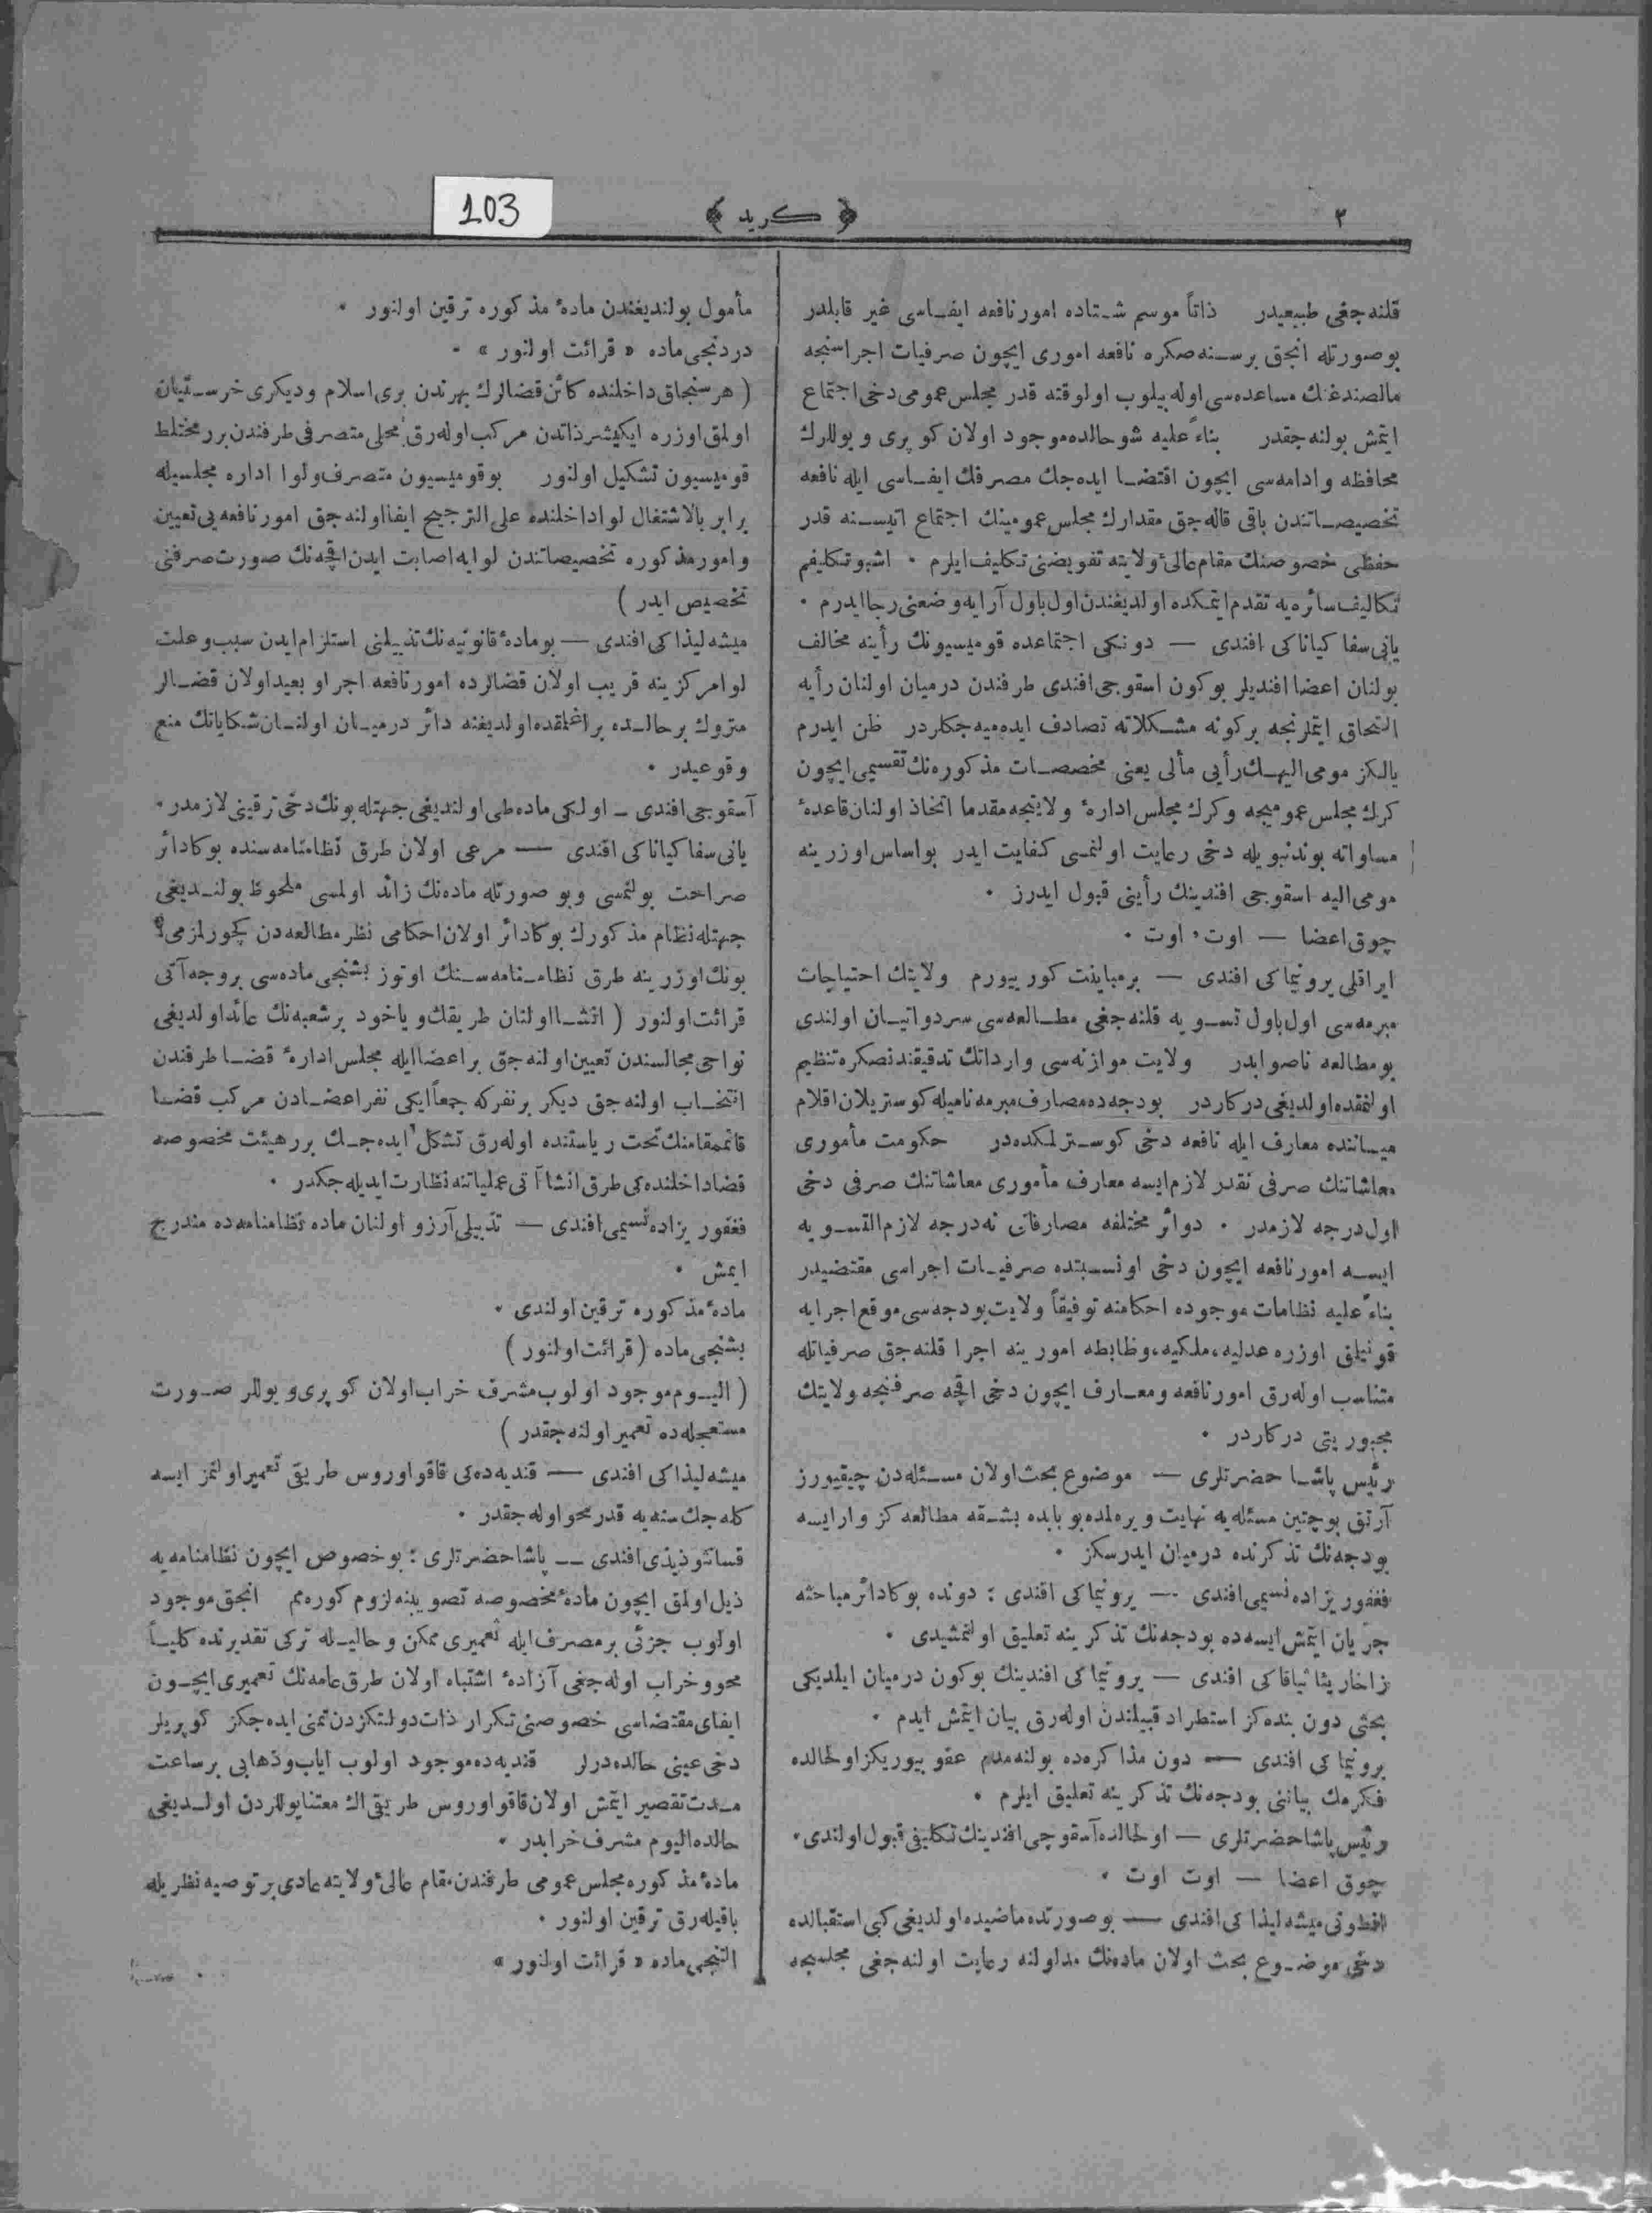 103
٢
﴿ كريد ﴾
قلنه‌جغی طبیعیدر ذاتاً موسم شتاده امور نافعه ایفاسی غیر قابلدر
بو صورتله انجق بر سنه صكره نافعه اموری ایچون صرفیات اجراسنجه
مالصندغنك مساعده‌سی اوله بیلوب اولوقته قدر مجلس عمومی دخی اجتماع
ایتمش بولنه‌جقدر بناءً علیه شو حالده موجود اولان كوپری و یوللرك
محافظه و ادامه‌سی ایچون اقتضا ایده‌جك مصرفك ایفاسی ایله نافعه
تخصیصاتندن باقی قاله‌جق مقدارك مجلس عمومینك اجتماع آتیسنه قدر
حفظی خصوصنك مقام عالئ ولایته تفویضنی تكلیف ایلرم ٠ اشبو تكلیفم
تكالیف سائره‌یه تقدم ایتمكده اولدیغندن اول باول آرایه وضعنی رجا ایدرم ٠
یانی سفاكیاناكی افندی — دونكی اجتماعده قومیسیونك رأینه مخالف
بولنان اعضا افندیلر بوكون اسقوجی افندی طرفندن درمیان اولنان رأیه
التحاق ایتملرنجه بركونه مشكلاته تصادف ایده‌میه‌جكلردر ظن ایدرم
یالكز مومی الیهك رأیی مألی یعنی مخصصات مذكوره‌نك تقسیمی ایچون
كرك مجلس عمومیجه وكرك مجلس ادارهٔ ولایتجه مقدما اتخاذ اولنان قاعدهٔ
مساواته بوندنبویله دخی رعایت اولنمسی كفایت ایدر بو اساس اوزرینه
مومی الیه اسقوجی افندینك رأینی قبول ایدرز ٠
چوق اعضا — اوت، اوت ٠
ایراقلی پرونیماكی افندی — بر مباینت كورییورم ولایتك احتیاجات
مبرمه‌سی اول باول تسویه قلنه‌جغی مطالعه‌سی سرد و اتیان اولندی
بو مطالعه ناصوابدر ولایت موازنه‌سی وارداتك تدقیقندنصكره تنظیم
اولنمقده اولدیغی دركاردر بودجه‌ده مصارف مبرمه نامیله كوستریلان اقلام
میاننده معارف ایله نافعه دخی كوسترلمكده‌در حكومت مأموری
معاشاتنك صرفی نقدر لازم ایسه معارف مأموری معاشاتنك صرفی دخی
اول درجه لازمدر ٠ دوائر مختلفه مصارفاتی نه درجه لازم التسویه
ایسه امور نافعه ایچون دخی اونسبتده صرفیات اجراسی مقتضیدر
بناءً علیه نظامات موجوده احكامنه توفیقاً ولایت بودجه‌سی موقع اجرایه
قونیلمق اوزره عدلیه، ملكیه، وضابطه امورینه اجرا قلنه‌جق صرفیاتله
متناسب اوله‌رق امور نافعه و معارف ایچون دخی اقچه صرفنجه ولایتك
مجبوریتی دركاردر ٠
رئیس پاشا حضرتلری — موضوع بحث اولان مسئله‌دن چیقیورز
آرتق بوچتین مسئله‌یه نهایت ویره‌لمده بو بابده بشقه مطالعه‌كز وارایسه
بودجه‌نك تذكرنده درمیان ایدرسكز ٠
فغفوریزاده نسیمی افندی — پرونیماكی افندی : دونده بوكا دائر مباحثه
جریان ایتمش ایسه‌ده بودجه‌نك تذكرینه تعلیق اولنمشیدی ٠
زاخاریثا ثیاقاكی افندی — پرونیماكی افندینك بوكون درمیان ایلدیكی
بحثی دون بنده‌كز استطراد قبیلندن اوله‌رق بیان ایتمش ایدم ٠
پرونیماكی افندی — دون مذاكره‌ده بولنه‌مدم عفو بیوریكز اولحالده
فكرمك بیاننی بودجه‌نك تذكرینه تعلیق ایلرم ٠
رئیس پاشا حضرتلری — اولحالده آسقوجی افندینك تكلیفی قبول اولندی ٠
چوق اعضا — اوت اوت ٠
افطوتی میشه‌لیذاكی افندی — بو صورتده ماضیده اولدیغی كبی استقبالده
دخی موضوع بحث اولان ماده‌نك مدلولنه رعایت اولنه‌جغی مجلسجه
مأمول بولندیغندن مادهٔ مذكوره ترقین اولنور ٠
دردنجی ماده « قرائت اولنور » ٠
( هر سنجاق داخلنده كائن قضالرك بهرندن بری اسلام ودیكری خرستیان
اولمق اوزره ایكیشر ذاتدن مركب اوله‌رق محلی متصرفی طرفندن برر مختلط
قومیسیون تشكیل اولنور بو قومیسیون متصرف و لوا اداره مجلسیله
برابر بالاشتغال لوا داخلنده علی الترجیح ایفا اولنه‌جق امور نافعه‌یی تعیین
و امور مذكوره تخصیصاتندن لوایه اصابت ایدن اقچه‌نك صورت صرفنی
تخصیص ایدر )
میشه‌لیذاكی افندی — بو مادهٔ قانونیه‌نك تذییلنی استلزام ایدن سبب و علت
لوا مركزینه قریب اولان قضالرده امور نافعه اجرا و بعید اولان قضالر
متروك بر حالده براغلمقده اولدیغنه دائر درمیان اولنان شكایاتك منع
وقوعیدر ٠
آسقوجی افندی — اولكی ماده طی اولندیغی جهتله بونك دخی ترقینی لازمدر ٠
یانی سفاكیاناكی افندی — مرعی اولان طرق نظامنامه‌سنده بوكا دائر
صراحت بولنمسی و بو صورتله ماده‌نك زائد اولمسی ملحوظ بولندیغی
جهتله نظام مذكورك بوكا دائر اولان احكامی نظر مطالعه‌دن كچورلزمی؟
بونك اوزرینه طرق نظامنامه‌سنك اوتوز بشنجی ماده‌سی بروجه آتی
قرائت اولنور ( انشا اولنان طریقك و یاخود بر شعبه‌نك عائد اولدیغی
نواحی مجالسندن تعیین اولنه‌جق بر اعضا ایله مجلس ادارهٔ قضا طرفندن
انتخاب اولنه‌جق دیكر بر نفر كه جمعاً ایكی نفر اعضادن مركب قضا
قائمقامنك تحت ریاستنده اوله‌رق تشكل ایده‌جك برر هیئت مخصوصه
قضا داخلنده‌كی طرق انشاآتی عملیاتنه نظارت ایدیله‌جكدر ٠
فغفوریزاده نسیمی افندی — تذییلی آرزو اولنان ماده نظامنامه‌ده مندرج
ایمش ٠
مادهٔ مذكوره ترقین اولندی ٠
بشنجی ماده ( قرائت اولنور )
( الیوم موجود اولوب مشرف خراب اولان كوپری و یوللر صورت
مستعجله‌ده تعمیر اولنه‌جقدر )
میشه‌لیذاكی افندی — قندیه‌ده‌كی قاقو اوروس طریقی تعمیر اولنمز ایسه
كله‌جك سنه‌یه قدر محو اوله‌جقدر ٠
قساتوذیذی افندی — پاشا حضرتلری : بو خصوص ایچون نظامنامه‌یه
ذیل اولمق ایچون مادهٔ مخصوصه تصویبنه لزوم كوره‌مم انجق موجود
اولوب جزئی بر مصرف ایله تعمیری ممكن و حالیله تركی تقدیرنده كلیاً
محو و خراب اوله‌جغی آزادهٔ اشتباه اولان طرق عامه‌نك تعمیری ایچون
ایفای مقتضاسی خصوصنی تكرار ذات دولتكزدن تمنی ایده‌جكز كوپریلر
دخی عینی حالده‌درلر قندیه‌ده موجود اولوب ایاب و ذهابی بر ساعت
مدت تقصیر ایتمش اولان قاقو اوروس طریقی اك معتنا یوللردن اولدیغی
حالده الیوم مشرف خرابدر ٠
مادهٔ مذكوره مجلس عمومی طرفندن مقام عالئ ولایته عادی بر توصیه نظریله
باقیله‌رق ترقین اولنور ٠
التنجی ماده « قرائت اولنور »